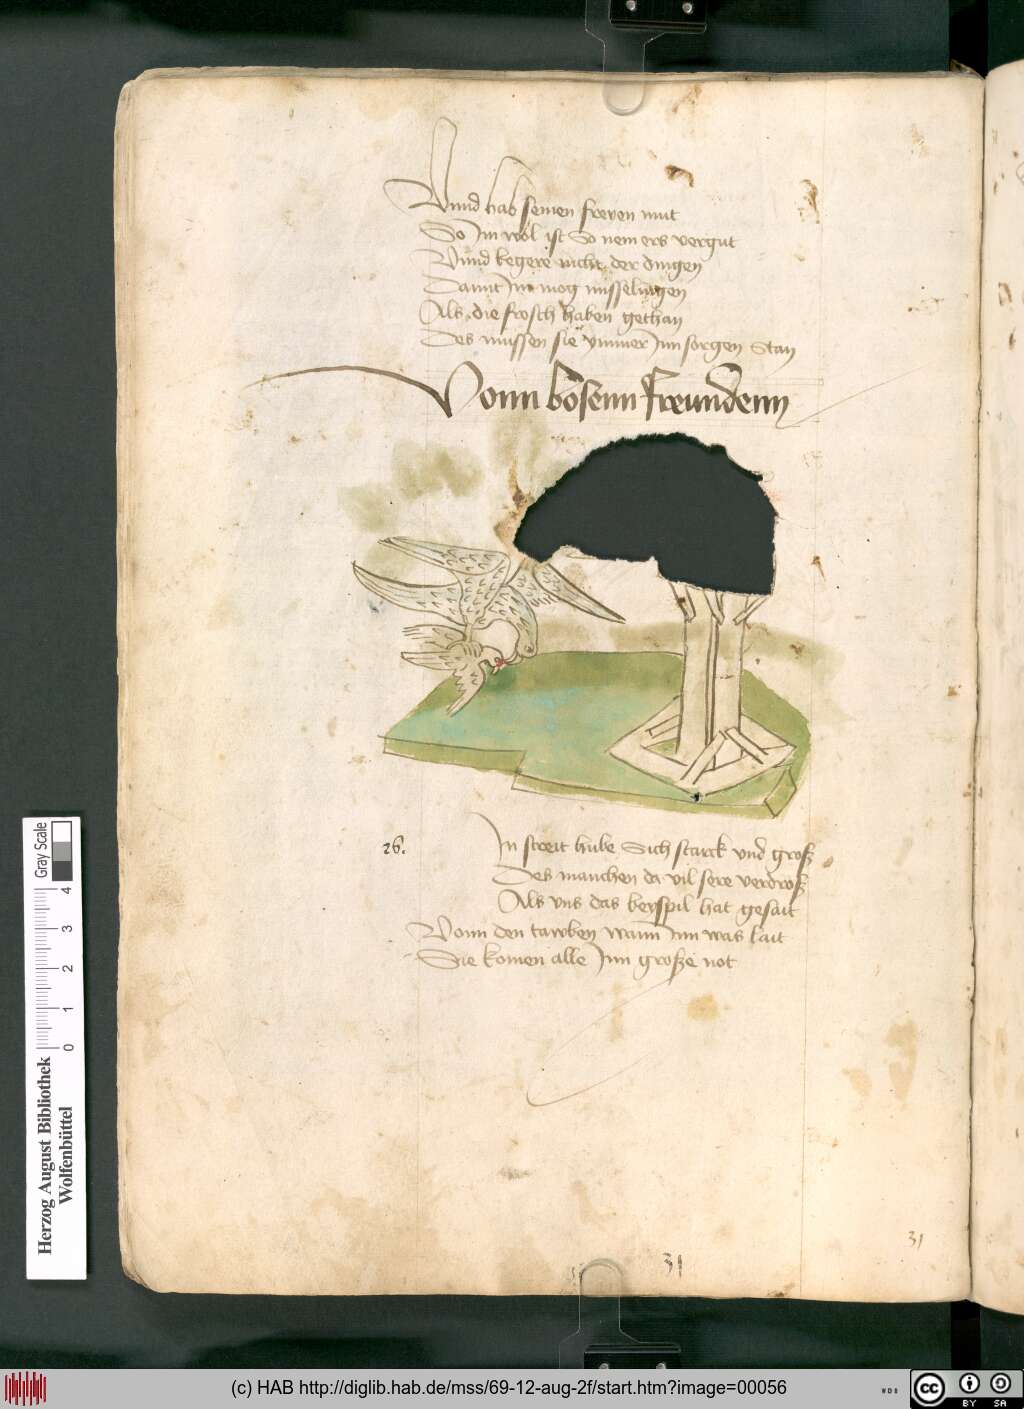 Vnnd hab seinen freyen mut
So Im wol ist So nem ers vergut
Vnnd begere nicht der dingen
Damit Im mog misselingen
Als die frosch haben gethan
Des mussen sie ymmer Inn sorgen Stan
Vonn bosenn freundenn
26.
In streit hube Sich starck vnd groß
Des manchen da vil sere verdroß
Als vns das beyspil hat gesait
Vonn den tawben wann Inn was lait
Sie komen alle Inn große not
31
31
Gray Scale
4
3
2
1
0
Herzog August Bibliothek
Wolfenbüttel
(c) HAB http://diglib.hab.de/mss/69-12-aug-2f/start.htm?image=00056
WDB
cc
BY
SA